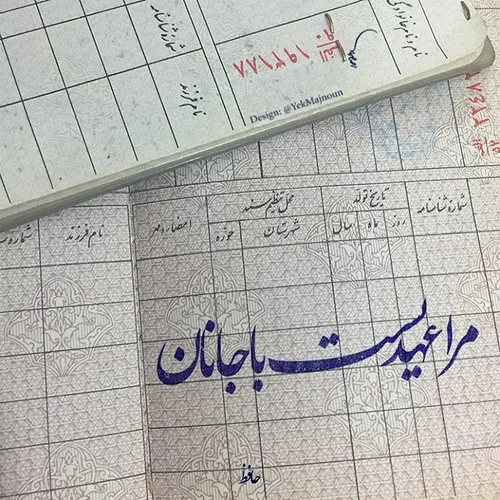 نام و نام خانوادگی
شماره شناسنامه
نام فرزند
Design: @YekMajnoun
شماره شناسنامه
تاریخ تولد
محل تنظیم سند
امضاء و مهر
روز
ماه
سال
شهرستان
حوزه
نام فرزند
مرا عهدیست با جانان
حافظ